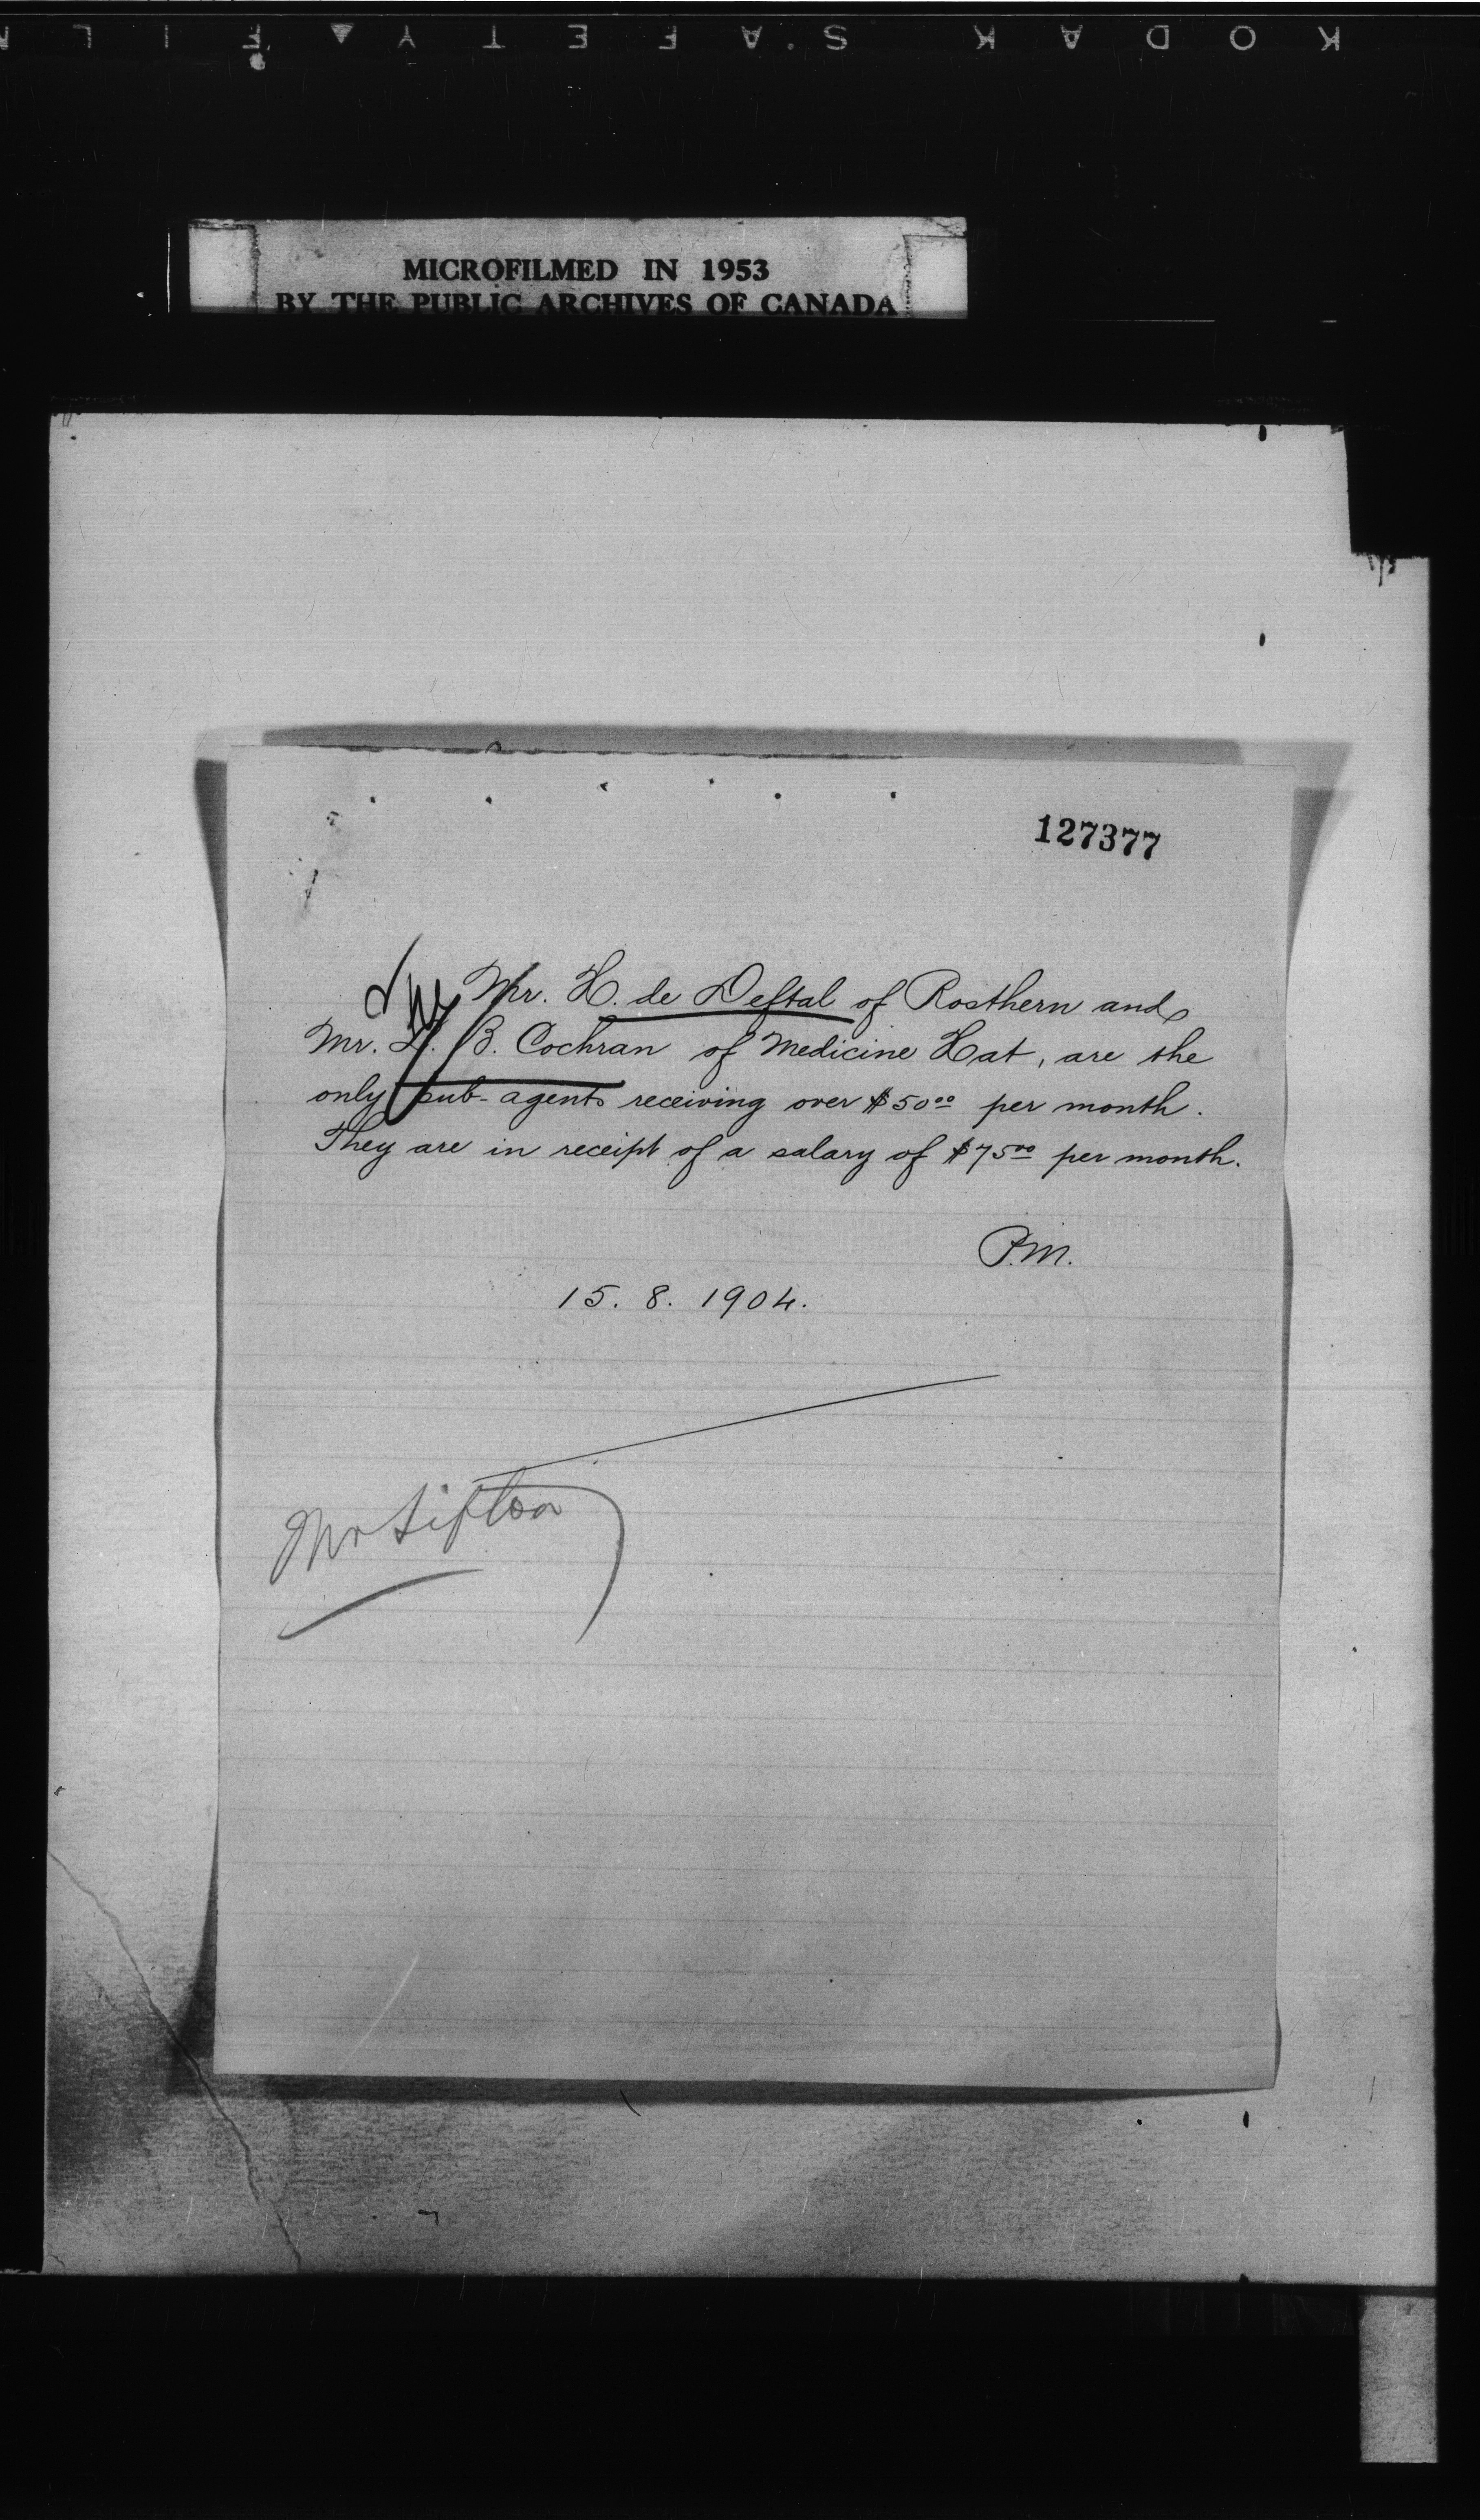 KODAK SAFETY FILM
MICROFILMED IN 1953
BY THE PUBLIC ARCHIVES OF CANADA
127377
Mr. H. de Deftal of Rosthern and
Mr. B. Cochran of Medicine Hat, are the
only sub-agents receiving over $50.00 per month.
They are in receipt of a salary of $75.00 per month.
P.M.
15. 8. 1904.
Mr Sifton